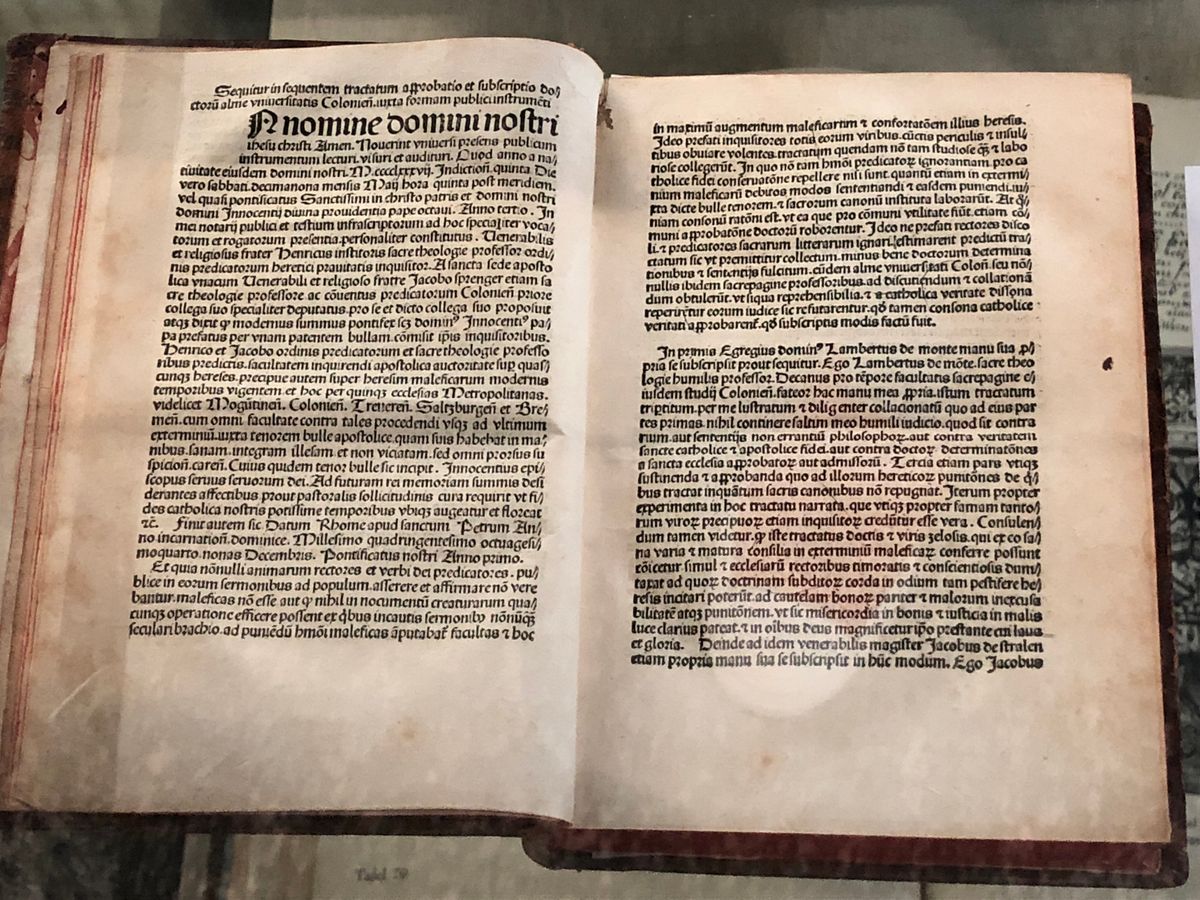 Sequitur in sequentem tractatum approbatio et subscriptio do⸗
ctorū alme vniuersitatis Colonien̄. iuxta formam publici instrumēti
N nomine domini nostri
ihesu christi Amen. Nouerint vniuersi presens publicum
instrumentum lecturi. visuri et audituri. Quod anno a na⸗
tiuitate eiusdem domini nostri. M.cccclxxxvij. Indiction̄. quinta. Die
vero sabbati. decimanona mensis Maij hora quinta post meridiem.
vel quasi pontificatus Sanctissimi in christo patris et domini nostri
domini Innocentij diuina prouidentia pape octaui. Anno tertio. In
mei notarij publici et testium infrascriptorum ad hoc specialiter voca⸗
torum et rogatorum presentia personaliter constitutus. Uenerabilis
et religiosus frater Henricus institoris sacre theologie professor ordi⸗
nis predicatorum heretice prauitatis inquisitor. A sancta sede aposto
lica vnacum Uenerabili et religioso fratre Jacobo sprenger etiam sa
cre theologie professore ac cōuentus predicatorum Colonien̄ priore
collega suo specialiter deputatus. pro se et dicto collega suo proposuit
atqꝫ dixit ꝙ modernus summus pontifex scꝫ dominꝰ Innocentiꝰ pa⸗
pa prefatus per vnam patentem bullam. cōmisit ip̄is inquisitoribus.
Henrico et Jacobo ordinis predicatorum et sacre theologie professo
ribus predictis. facultatem inquirendi apostolica auctoritate suꝑ quas⸗
cunqꝫ hereses. precipue autem super heresim maleficarum modernis
temporibus vigentem et hoc per quinqꝫ ecclesias Metropolitanas.
videlicet Mogūtinen̄. Colonien̄. Treueren̄. Saltzburgen̄ et Bre⸗
men̄. cum omni facultate contra tales procedendi vsqꝫ ad vltimum
exterminiū. iuxta tenorem bulle apostolice. quam suis habebat in ma⸗
nibus. sanam. integram illesam et non viciatam. sed omni prorsus su
spicion̄. caren̄. Cuius quidem tenor bulle sic incipit. Innocentius epi⸗
scopus seruus seruorum dei. Ad futuram rei memoriam summis desi
derantes affectibus prout pastoralis sollicitudinis cura requirit vt fi⸗
des catholica nostris potissime temporibus vbiqꝫ augeatur et floreat
⁊c̄. Finit autem sic. Datum Rhome apud sanctum Petrum An⸗
no incarnation̄. dominice. Millesimo quadringentesimo octuagesi⸗
moquarto. nonas Decembris. Pontificatus nostri Anno primo.
Et quia nōnulli animarum rectores et verbi dei predicatores. pu⸗
blice in eorum sermonibus ad populum. asserere et affirmare nō vere
bantur. maleficas nō esse aut ꝙ nihil in nocumentū creaturarum qua⸗
cunqꝫ operatione efficere possent ex q̄bus incautis sermonibꝰ nōnūqꝫ̄
seculari brachio. ad puniēdū hmōi maleficas āputabat̄ facultas ⁊ hoc
in maximū augmentum maleficarum ⁊ confortatōem illius heresis.
Ideo prefati inquisitores totis eorum viribus. cūctis periculis ⁊ insul⸗
tibus obuiare volentes. tractatum quendam nō tam studiose qꝫ̄ ⁊ labo
riose collegerūt. In quo nō tam hmōi predicatoꝝ ignorantiam. pro ca
tholice fidei conseruatōne repellere nisi sunt. quantū etiam in extermi⸗
nium maleficarū debitos modos sententiandi ⁊ easdem puniendi. iu⸗
xta dicte bulle tenorem. ⁊ sacrorum canonū instituta laborarūt. At q̄⸗
niam consonū ratōni est. vt ea que pro cōmuni vtilitate fiūt. etiam cō⸗
muni approbatōne doctorū roborentur. Ideo ne prefati rectores disco
li. ⁊ predicatores sacrarum litterarum ignari. estimarent predictū tra⸗
ctatum sic vt premittitur collectum. minus bene doctorum determina
tionibus ⁊ sententijs fulcitum. eūdem alme vniuersitati Colon̄. seu nō⸗
nullis ibidem sacrepagine professoribus. ad discutiendum ⁊ collationā
dum obtulerūt. vt si qua reprehensibilia. ⁊ a catholica veritate dissona
reperirētur eorum iudice sic refutarentur. qd̄ tamen consona catholice
veritati approbarent̄. qd̄ subscriptus modis factū fuit.
In primis Egregius dominꝰ Lambertus de monte manu sua ꝓ⸗
pria se subscripsit prout sequitur. Ego Lambertus de mōte. sacre theo
logie humilis professor. Decanus pro tēpore facultatis sacrepagine ei⸗
iusdem studij Colonien̄. fateor hac manu mea ꝓpria. istum tractatum
tripartitum. per me lustratum ⁊ diligenter collacionatū quo ad eius par
tes primas. nihil continere saltim meo humili iudicio. quod sit contra
rium. aut sententijs non errantiū philosophoꝝ. aut contra veritatem
sancte catholice ⁊ apostolice fidei. aut contra doctoꝝ determinatōnes
a sancta ecclesia approbatoꝝ aut admissorū. Tercia etiam pars vtiqꝫ
sustinenda ⁊ approbanda quo ad illorum hereticoꝝ punitōnes de q̄⸗
bus tractat inquātum sacris canonibus nō repugnat. Iterum propter
experimenta in hoc tractatu narrata. que vtiqꝫ propter famam tanto⸗
rum viroꝝ precipuoꝝ etiam inquisitoꝝ credūtur esse vera. Consulen⸗
dum tamen videtur. ꝙ iste tractatus doctis ⁊ viris zelosis. qui ex eo sa⸗
na varia ⁊ matura consilia in exterminiū maleficaꝝ conferre possunt
cōicetur. simul ⁊ ecclesiarū rectoribus timoratis ⁊ conscientiosis dum⸗
taxat ad quoꝝ doctrinam subditoꝝ corda in odium tam pestifere he⸗
resis incitari poterūt. ad cautelam bonoꝝ pariter ⁊ malorum inexcusa
bilitatē atqꝫ punitōnem. vt sic misericordia in bonis ⁊ iusticia in malis
luce clarius pateat. ⁊ in oībus deus magnificetur ip̄o prestante cui laus
et gloria. Deinde ad idem venerabilis magister Jacobus de stralen
etiam propria manu sua se subscripsit in hūc modum. Ego Jacobus
Tafel 59